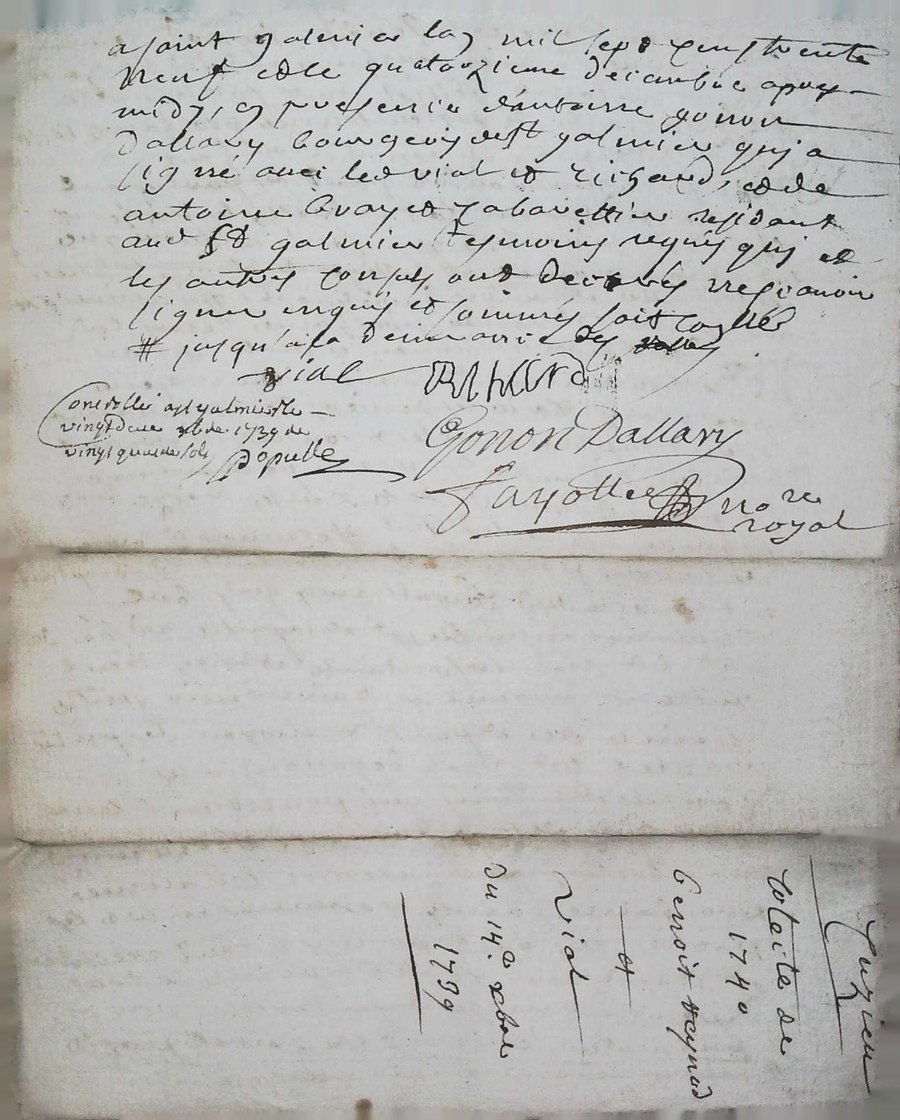 a saint galmier lan mil sept cens trente
neuf et le quatorzieme decembre apres
midy, en presence d'antoine gonon
Dallary bourgeois de st galmier qui a
signé avec led vial et richard, et de
antoine cabarettier residant
aud st galmier tesmoins requis qui et
les autres ont declarés ne scavoir
signer enquis et sommés soit
# jusqu'a la
vial
Richard
Gonon Dallary
Controllé a st galmier le
vingt deux xbre 1739
vingt quatre sols Populle
Fayolle nore
royal
Cuzieu
de
1740
benoit
et
Vial
du 14e xbre
1739